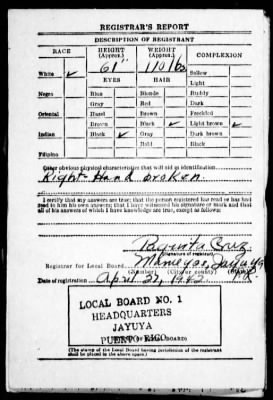 REGISTRAR'S REPORT
DESCRIPTION OF REGISTRANT
RACE HEIGHT (Approx.) WEIGHT (Approx.) COMPLEXION
61" 110 lbs.
White ✓ EYES HAIR Sallow
Light
Negro Blue Blonde Ruddy
Gray Red Dark
Oriental Hazel Brown Freckled
Brown Black ✓ Light brown ✓
Indian Black ✓ Gray Dark brown
Bald Black
Filipino
Other obvious physical characteristics that will aid in identification
Right Hand broken.
I certify that my answers are true; that the person registered has read or has had
read to him his own answers; that I have witnessed his signature or mark and that
all of his answers of which I have knowledge are true, except as follows:
Registrar for Local Board
(Number) (City or county)
Date of registration April 27, 1942
LOCAL BOARD NO. 1
HEADQUARTERS
JAYUYA
PUERTO RICO
(The stamp of the Local Board having jurisdiction of the registrant
shall be placed in the above space.)